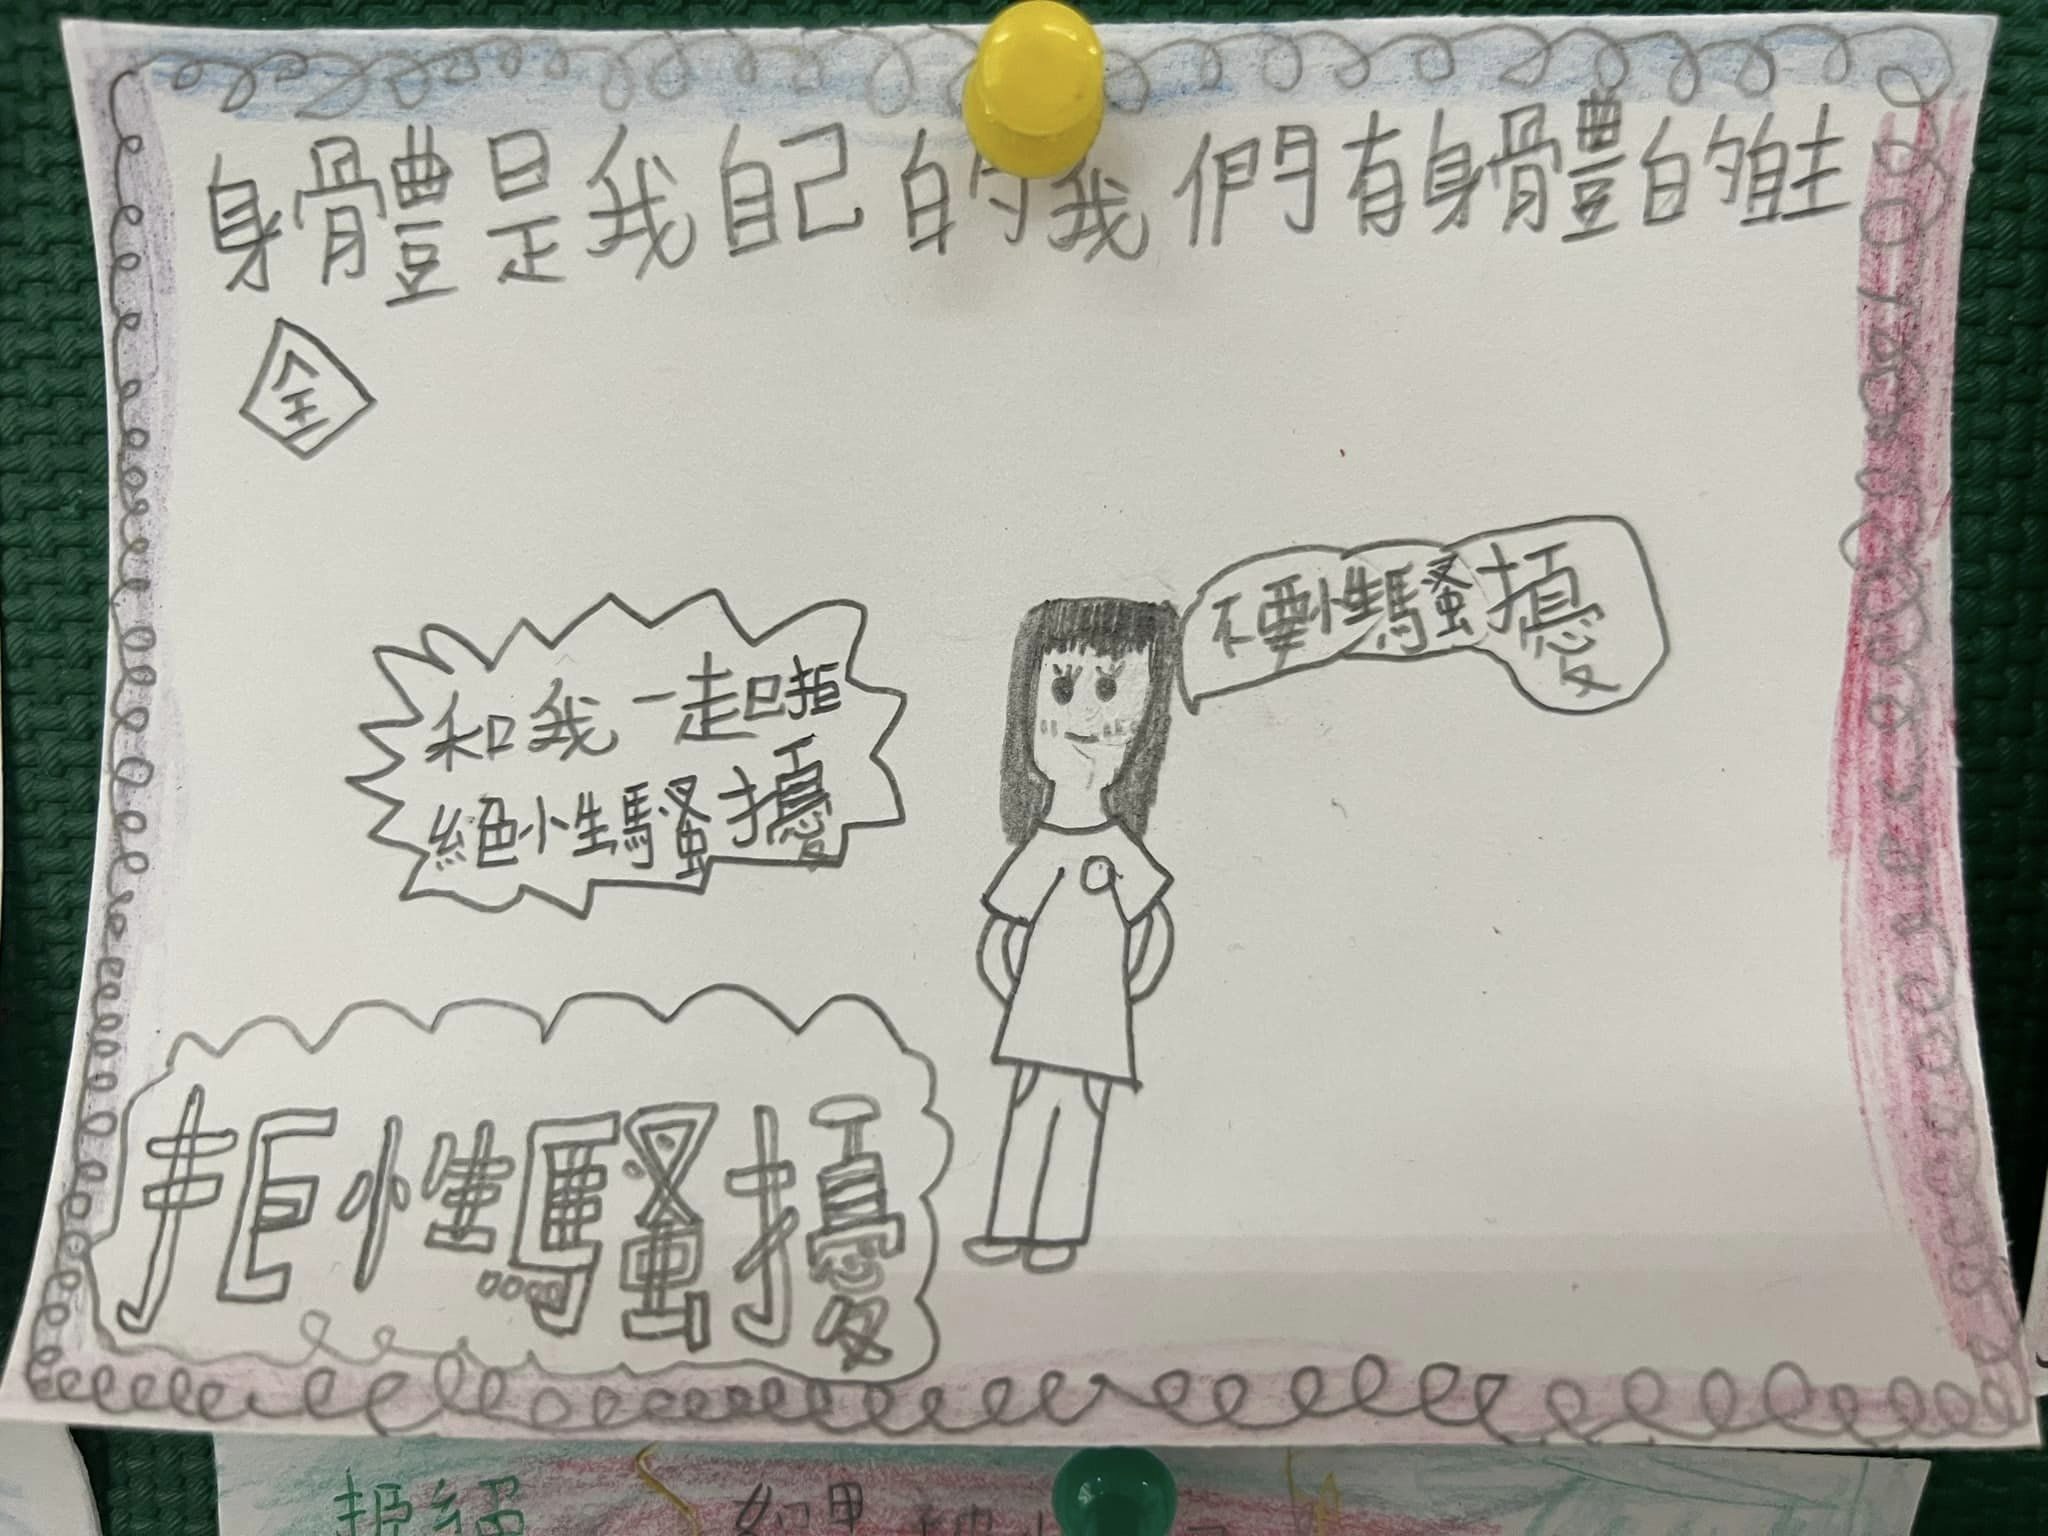 身體是我自己的我們有身體的自主
全
不要性騷擾
和我一起拒
絕性騷擾
拒性騷擾
拒絕
如果